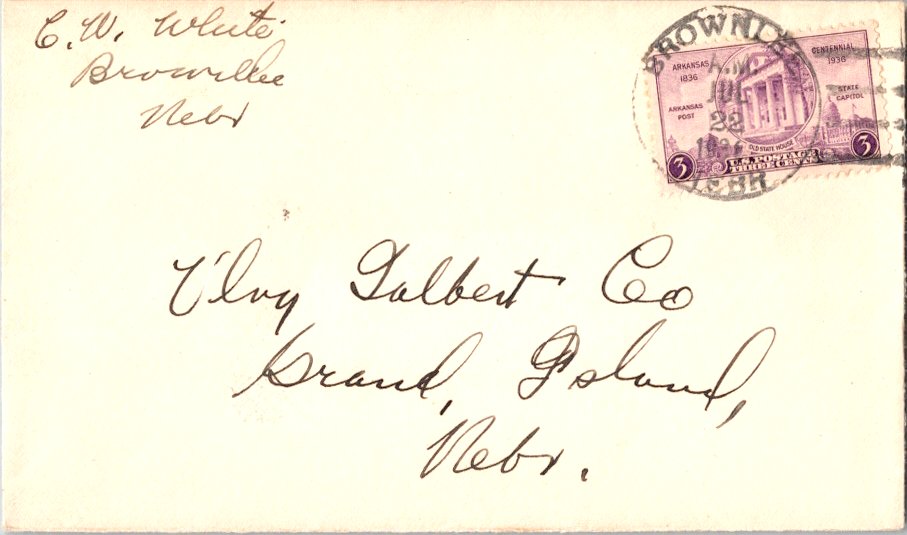 C. W. White
Brownlee
Nebr
BROWNLEE
A.M.
JUL
22
1936
NEBR
ARKANSAS
1836
CENTENNIAL
1936
ARKANSAS
POST
STATE
CAPITOL
OLD STATE HOUSE
3
U.S. POSTAGE
THREE CENTS
3
Talbert Co
Grand Island,
Nebr.